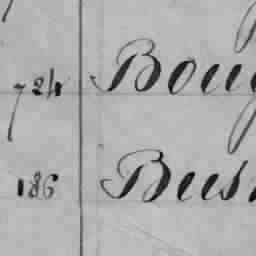 724 Boug
186 Bus